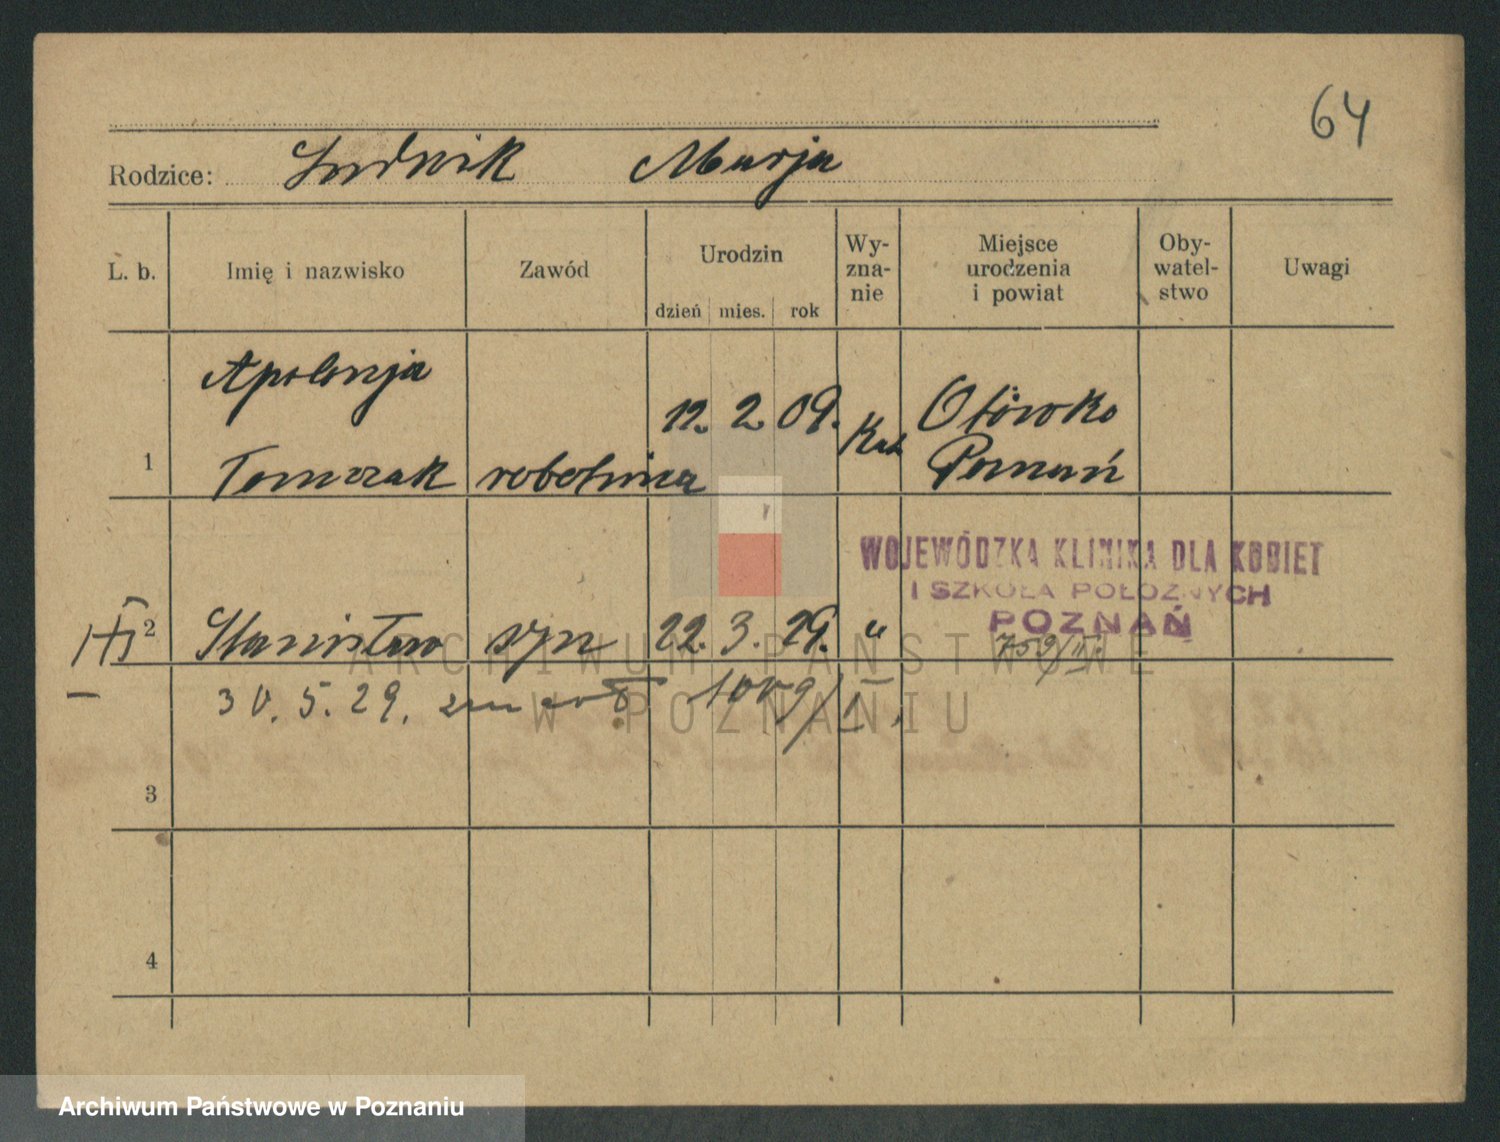 64
Rodzice: Ludwik Marja
L. b. Imię i nazwisko Zawód Urodzin dzień mies. rok Wy-zna-nie Miejsce urodzenia i powiat Oby-watel-stwo Uwagi
Apolonja
12. 2. 09. Kat. Otówko
1 Tomczak robotnica Poznań
WOJEWÓDZKA KLINIKA DLA KOBIET
I SZKOŁA POŁOŻNYCH
POZNAŃ
2 Stanisław syn 22. 3. 29. "
759/II.
30. 5. 29. zmarł
3
4
ARCHIWUM PAŃSTWOWE
W POZNANIU
Archiwum Państwowe w Poznaniu